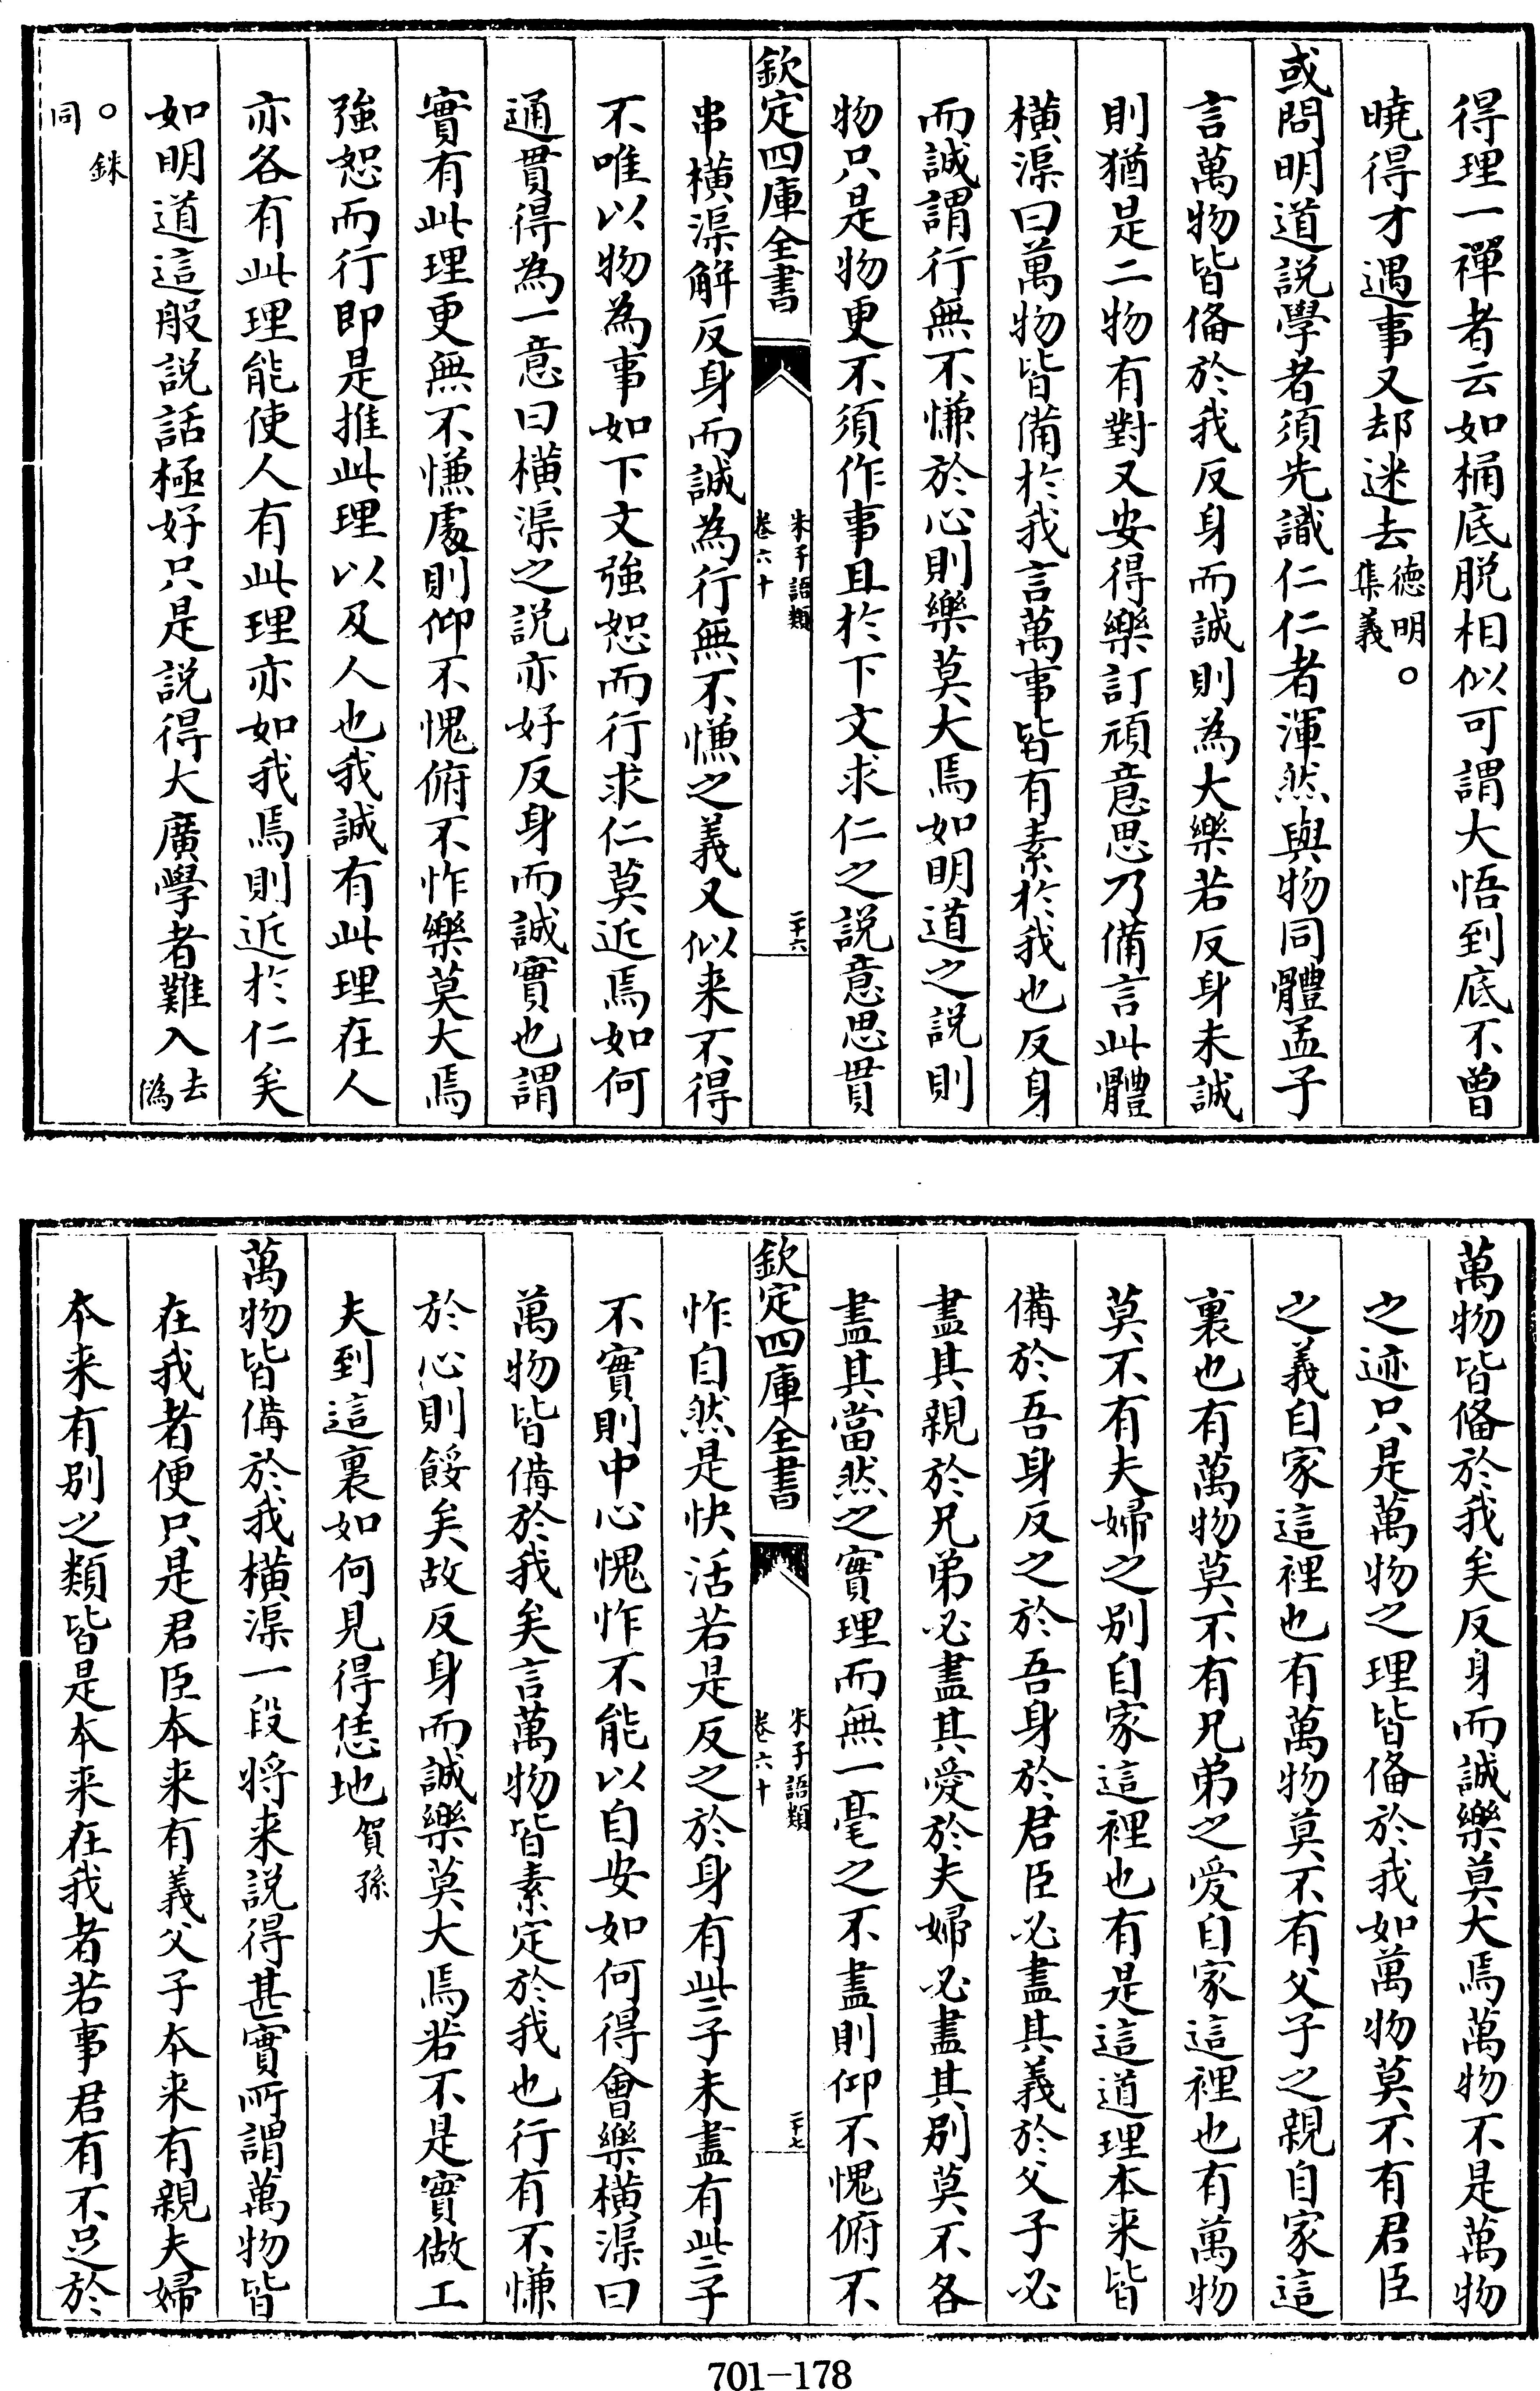 得理一禪者云如桶底脱相似可謂大悟到底不曽
曉得才遇事又却迷去德明。集義
或問明道説學者須先識仁仁者渾然與物同體孟子
言萬物皆備於我反身而誠則為大樂若反身未誠
則猶是二物有對又安得樂訂頑意思乃備言此體
横渠曰萬物皆備於我言萬事皆有素於我也反身
而誠謂行無不慊於心則樂莫大焉如明道之説則
物只是物更不須作事且於下文求仁之説意思貫
欽定四庫全書
朱子語類
卷六十
二十六
串横渠解反身而誠為行無不慊之義又似来不得
不唯以物為事如下文強恕而行求仁莫近焉如何
通貫得為一意曰横渠之説亦好反身而誠實也謂
實有此理更無不慊處則仰不愧俯不怍樂莫大焉
強恕而行即是推此理以及人也我誠有此理在人
亦各有此理能使人有此理亦如我焉則近於仁矣
如明道這般説話極好只是説得大廣學者難入去偽
。銖同
萬物皆備於我矣反身而誠樂莫大焉萬物不是萬物
之迹只是萬物之理皆備於我如萬物莫不有君臣
之義自家這裡也有萬物莫不有父子之親自家這
裏也有萬物莫不有兄弟之愛自家這裡也有萬物
莫不有夫婦之别自家這裡也有是這道理本来皆
備於吾身反之於吾身於君臣必盡其義於父子必
盡其親於兄弟必盡其愛於夫婦必盡其别莫不各
盡其當然之實理而無一毫之不盡則仰不愧俯不
欽定四庫全書
朱子語類
卷六十
二十七
怍自然是快活若是反之於身有些子未盡有些子
不實則中心愧怍不能以自安如何得會樂横渠曰
萬物皆備於我矣言萬物皆素定於我也行有不慊
於心則餒矣故反身而誠樂莫大焉若不是實做工
夫到這裏如何見得恁地賀孫
萬物皆備於我横渠一段將来説得甚實所謂萬物皆
在我者便只是君臣本来有義父子本来有親夫婦
本来有别之類皆是本来在我者若事君有不足於
701-178